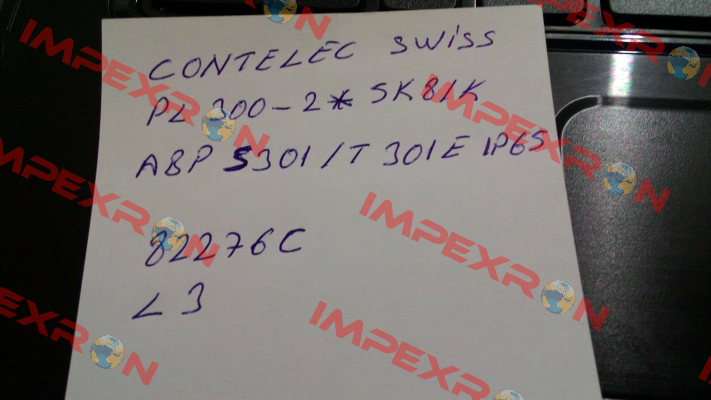 CONTELEC SWISS
PL 300-2* 5K81K
ABP S301/T301E IP65
82276C
L3
IMPEXRON
IMPEXRON
IMPEXRON
IMPEXRON
IMPEXRON
IMPEXRON
IMPEXRON